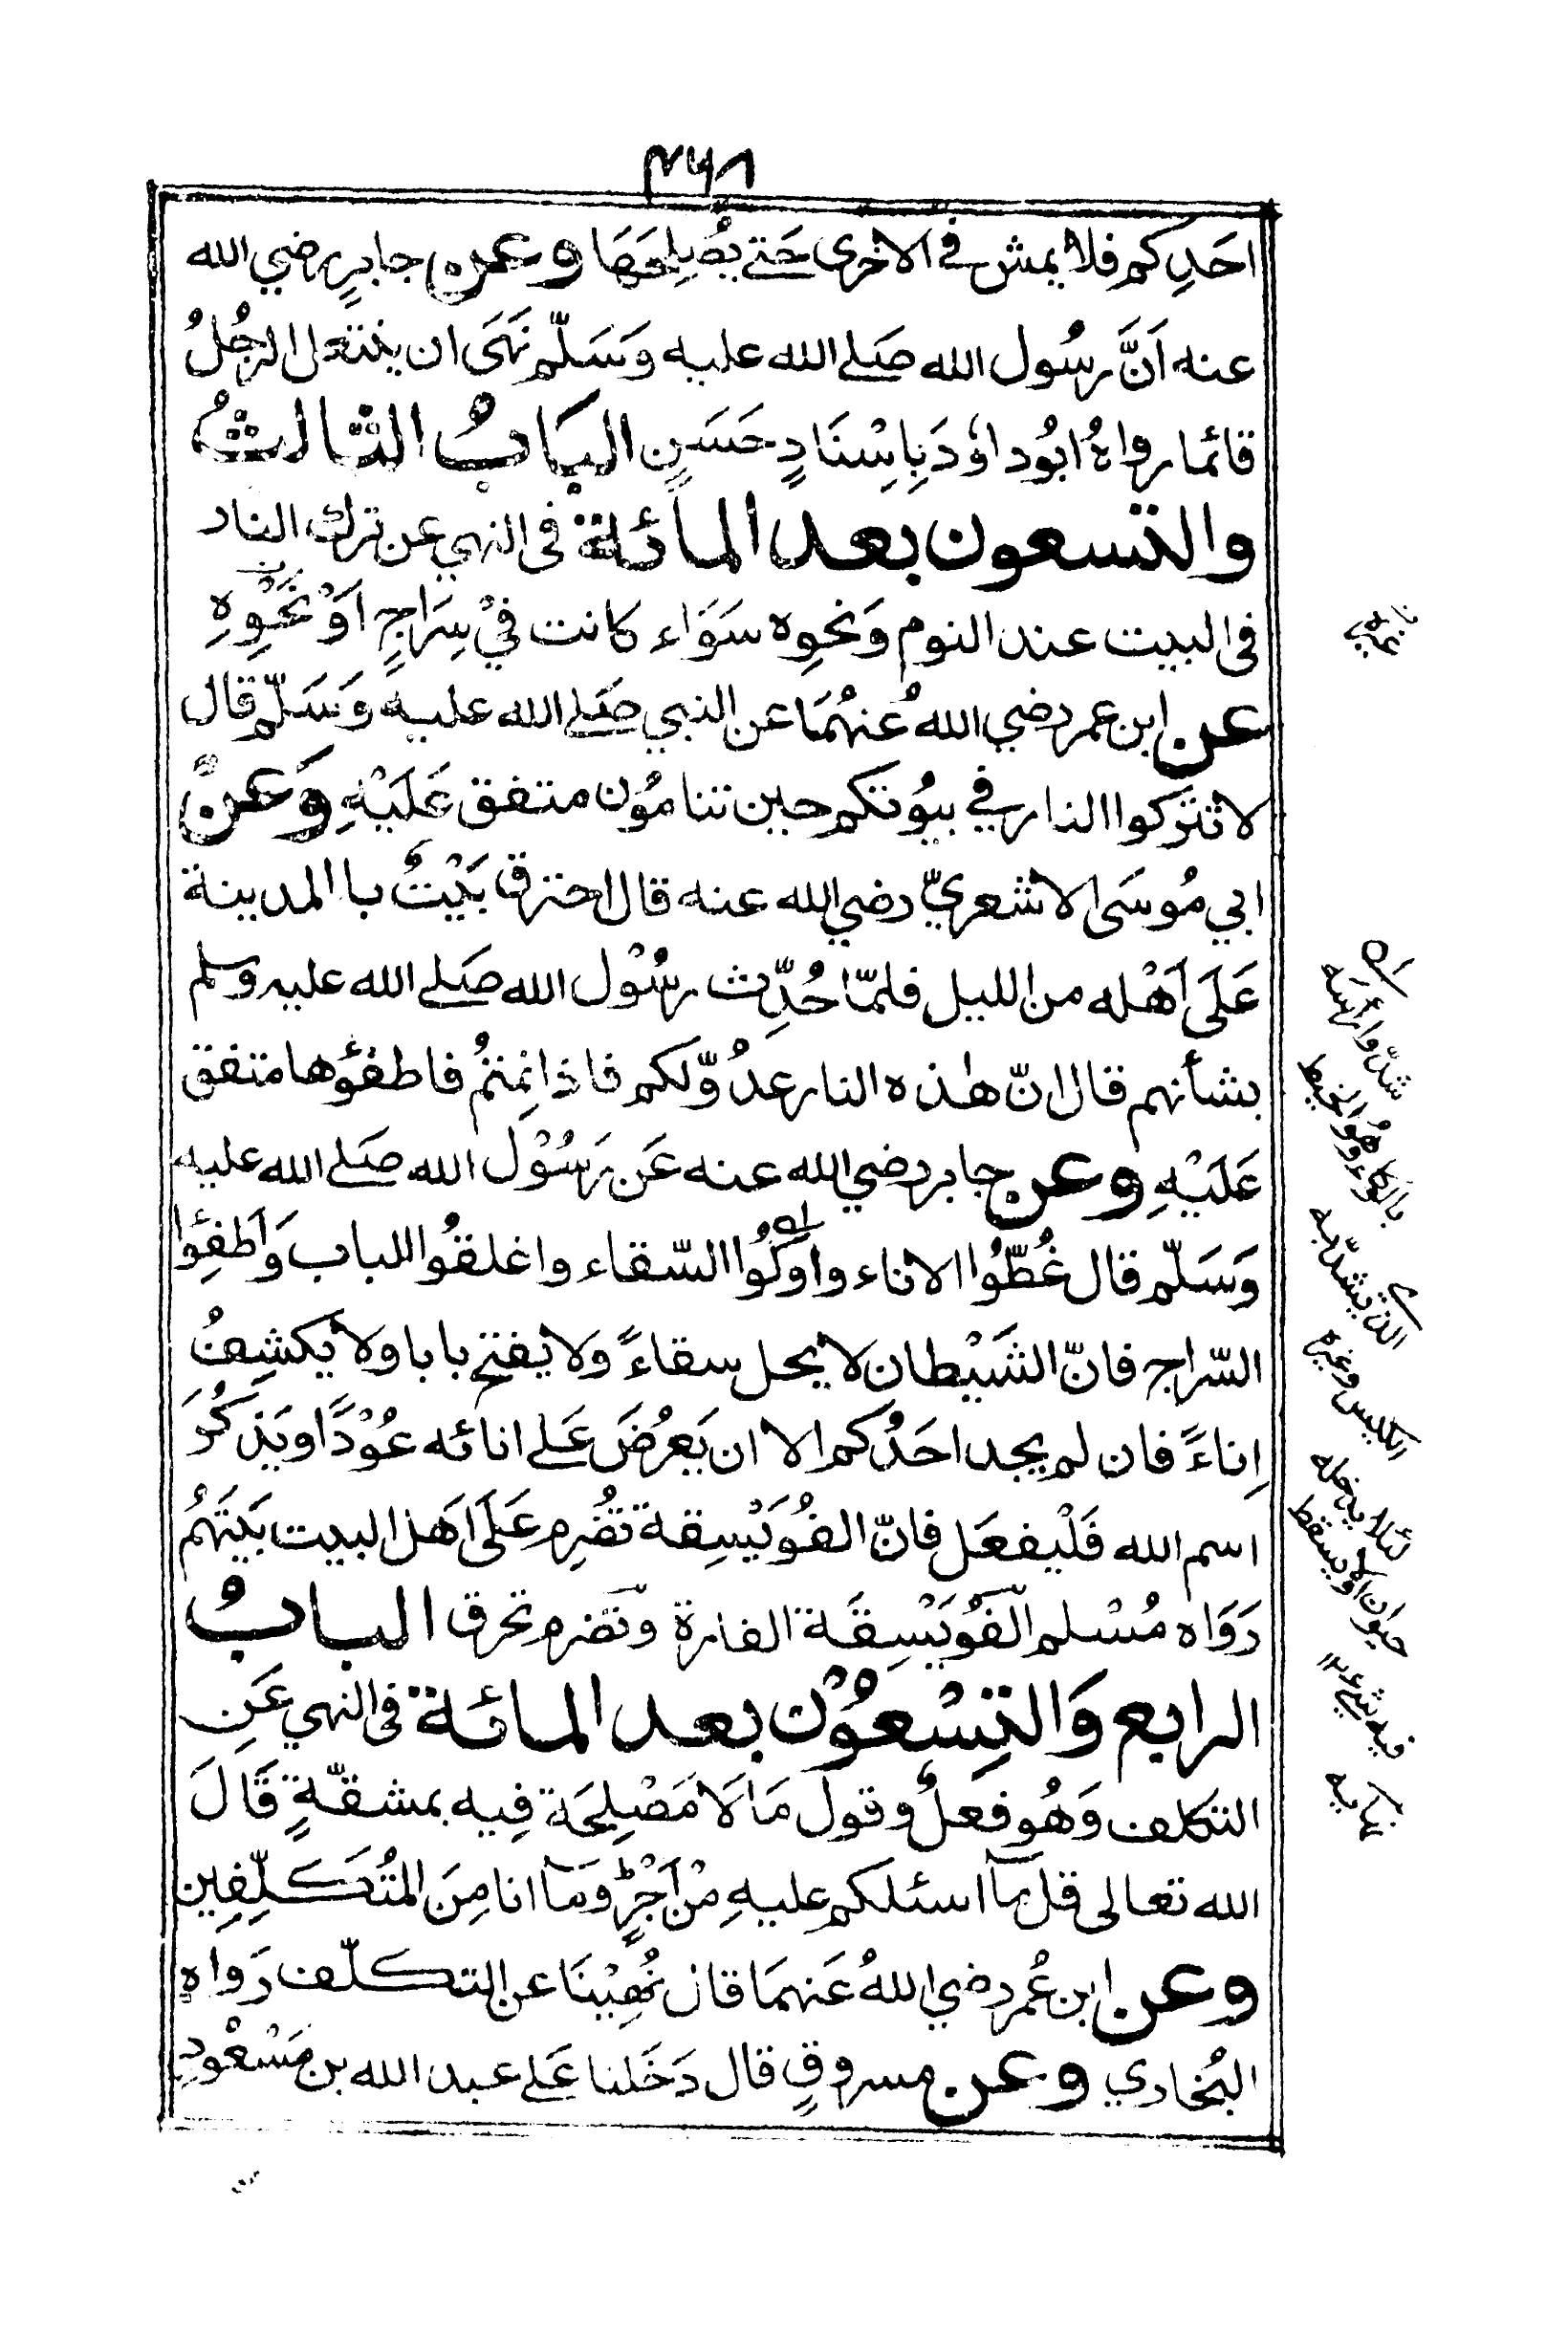 ٣٦٨
احَدِكم فلا يمش في الاخرى حَتے يُصْلِحَهَا وعن جابرٍ رضي الله
عنه اَنَّ رسُول الله صَلے الله عليه وَسَلّم نَهَى ان ينتعل الرجُلُ
قائما رواهُ ابُو داوٗدَ بِاِسْنَادٍ حَسَنٍ البَابُ الثالثُ
والتسعون بعد المائة فى النهي عن ترك النار
فى البيت عند النوم وَنحوِه سَوَاء كانت فيْ سِرَاجٍ اَوْ نَحْوِهِ
عن ابن عمر رضي اللهُ عنهُمَا عن النبي صَلے الله عليه وَسَلّم قال
لا تتركوا النار في بيُوتكم حين تنامُون متفق عَلَيْهِ وَعنْ
ابي مُوسَى الاشعريّ رضي الله عنه قال احترق بَيْتٌ با المدينة
عَلَى اَهْله من الليل فلمّا حُدِّث رسُوْل الله صَلے الله عليه وسلم
بشأنهم قال انّ هٰذه النار عدُوّ لكم فاذا نِمتمُ فاطفؤها متفق
عَلَيْهِ وعن جابر رضي الله عنه عَن رَسُوْل الله صَلے الله عليه
وَسَلّم قال غُطُّوا الاناء واوكُوا السّقاء واغلقُوا اللباب وَاَطفِئوا
السّراج فانّ الشَيْطان لا يحل سقاءً ولا يفتح بابا ولا يكشِفُ
اِناءً فان لم يجد احَدُكم الا ان يَعرُضَ عَلے انائه عُوْدًا ويَذكُرَ
اسم الله فَلْيفعَل فانّ الفُوَيْسِقة تُضْرِم عَلَى اهَل البيت بَيتَهمُ
رَوَاه مُسْلم الفُوَيْسِقَة الفارة وَتضرم تحرق البابُ
الرابع وَالتِسْعُوْن بعد المائة فى النهي عَنِ
التكلف وَهُو فعلٌ وقول مَا لَا مَصْلِحَة فِيه بمشقّةٍ قَالَ
الله تعالى قل مآ اسئلكم عليهِ مْن اَجْرٍ ومَآ انا مِنَ المُتَكَلِّفِين
وعن ابن عُمر رضي اللهُ عَنهمَا قال نُهِيْنَا عن التكلّف رَواه
البُخاري وعن مسروقٍ قال دَخَلنا عَلے عبد الله بن مَسْعُودٍ
شدّوا رأسه
بالوكاء وهُو الخيط
الذي يشدّ به
الكيس وغيره
لئلا يدخله
حيوان او يسقط
فيه شيء ١٢
نهايه